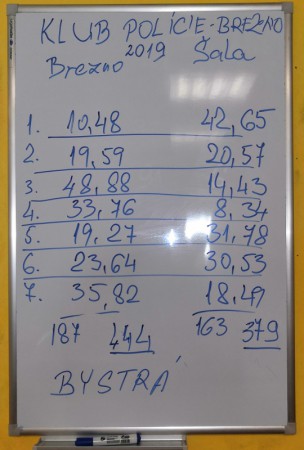 KLUB POLÍCIE-BREZNO
Brezno 2019 Šala
1. 10,48 42,65
2. 19,59 20,57
3. 48,88 14,43
4. 33,76 8,34
5. 19,27 31,78
6. 23,64 30,53
7. 35,82 18,49
187 444 163 379
BYSTRÁ